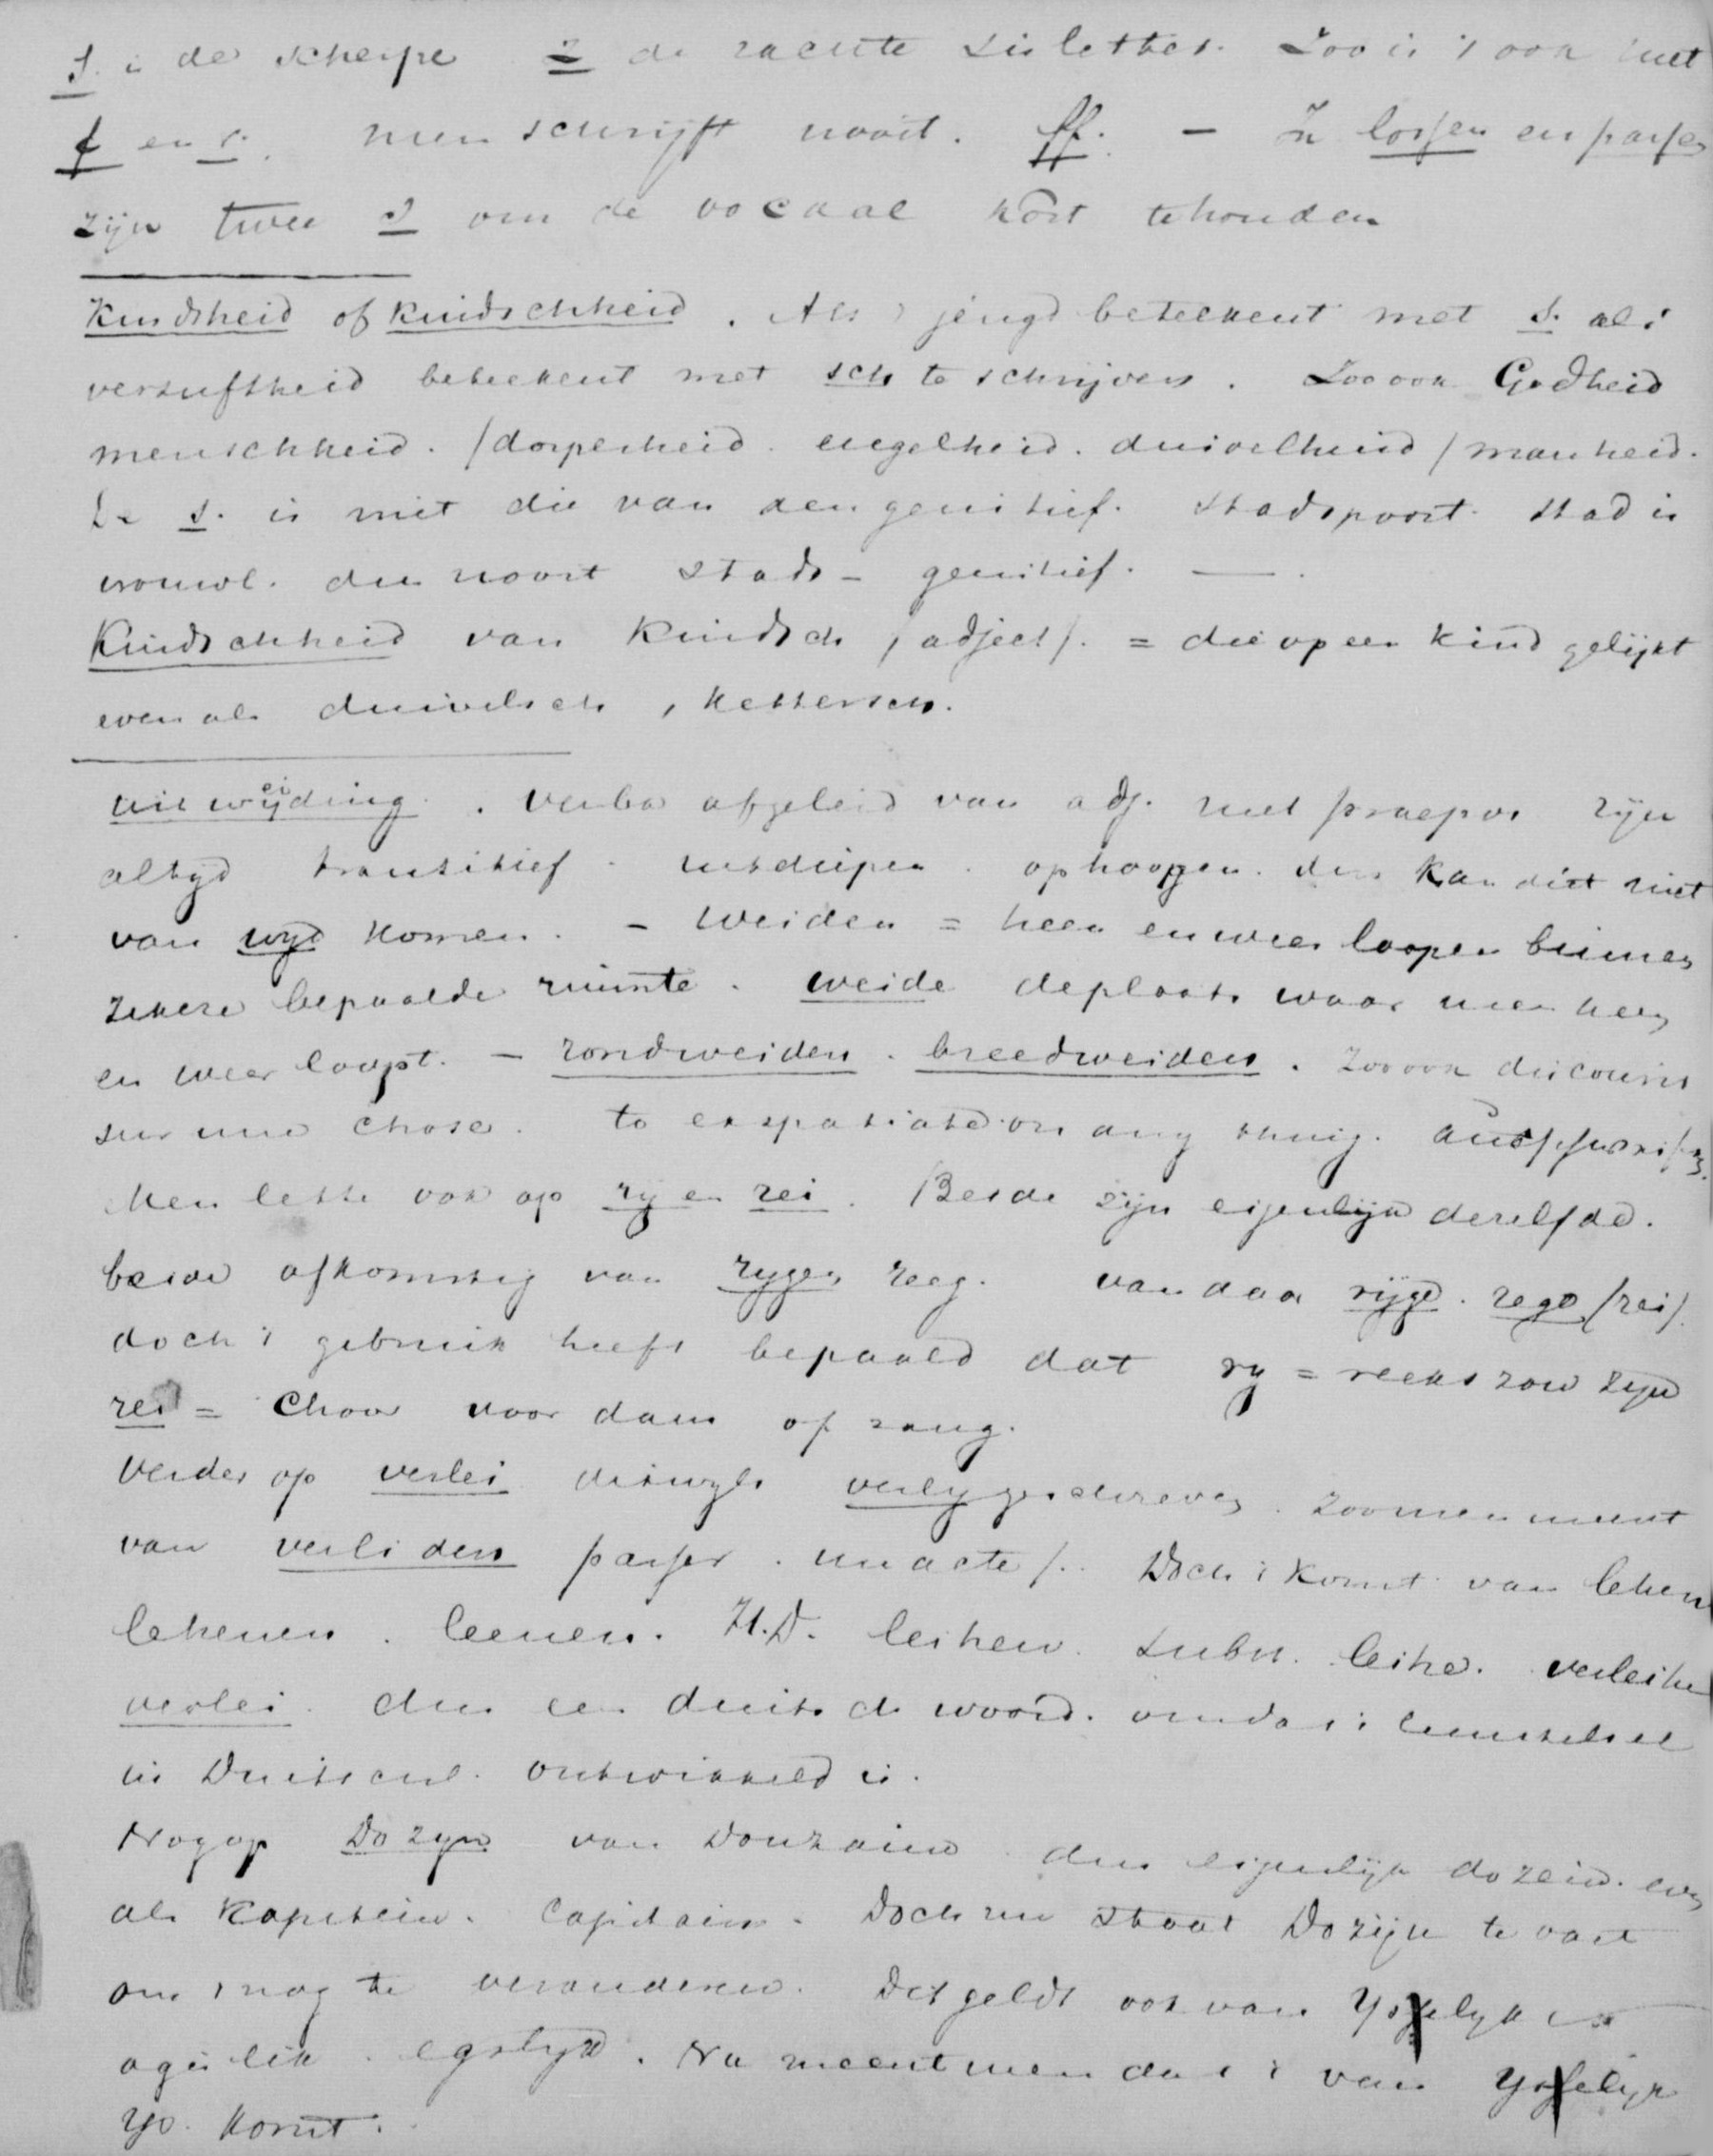 s. is de scherpe z de zachte sisletter. Zoo is 't ook met
f en v. men schrijft nooit. ff. — In lossen en passen
zijn twee s om de vocaal kort te houden
Kindsheid of kindschheid. Als 't jeugd beteekent met s. als 't
versuftheid beteekent met sch te schrijven. Zoo ook Godheid
menschheid. (dorperheid. engelheid. duivelheid) manheid.
De s. is niet die van den genitief. Stadspoort. stad is
vrouwl. dus nooit stads – genitief. —.
Kindschheid van kindsch (adject). = die op een kind gelijkt
evenals duivelsch, kettersch.
uitwijding. ei Verba afgeleid van adj. met praepos zijn
altijd transitief. uitdiepen. ophoogen. dus kan dit niet
van wijd komen. – Weiden = heen en weer loopen binnen
zekere bepaalde ruimte. weide de plaats waar men heen
en weer loopt. – rondweiden. breedweiden. Zoo ook discourir
sur une chose. to expatiate on any thing.
Men lette ook op rij en rei. Beide zijn eigenlijk dezelfde.
beide afkomstig van rijgen reeg. van daar rijge. rege (rei).
doch 't gebruik heeft bepaald dat rij = reeks zou zijn
rei = Choor voor dans of zang.
Verder op verlei dikwijls verlij geschreven. zoo men meent
van verliden passer. un acte). Doch 't komt van lehen
lehenen. leenen. H.D. leihen. Subst. leihe. verleihe
verlei. dus een duitsch woord. omdat 't leenstelsel
in Duitschl. ontwikkeld is.
Nog op Dozijn van Douzaine dus eigenlijk dozein. even
als Kapitein. Capitaine. Doch nu staat Dozijn te vast
om 't nog te veranderen. Dit geldt ook van Yselijk
agislik. egslijk. Nu meent men dat 't van Yselijk
ys. komt.